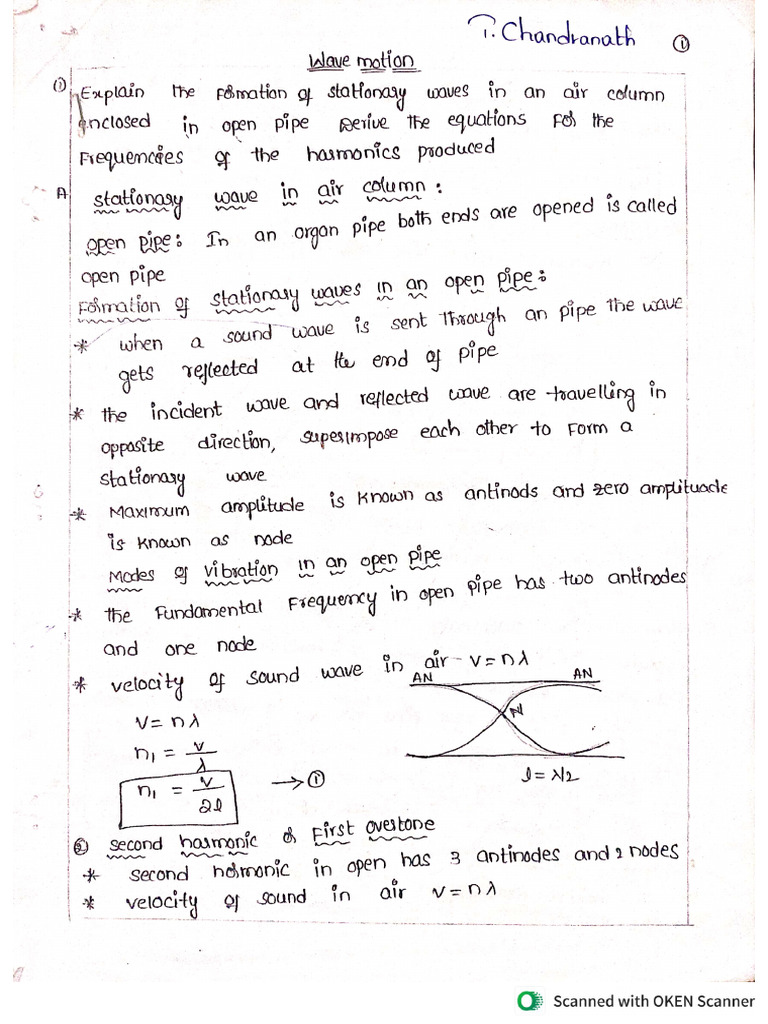 T. Chandranath ①
Wave motion
① Explain the formation of stationary waves in an air column
enclosed in open pipe Derive the equations for the
Frequencies of the harmonics produced
A stationary wave in air column :
open pipe : In an organ pipe both ends are opened is called
open pipe
Formation of stationary waves in an open pipe :
* when a sound wave is sent through an pipe the wave
gets reflected at the end of pipe
* the incident wave and reflected wave are travelling in
opposite direction, superimpose each other to form a
stationary wave
* Maximum amplitude is known as antinods and zero amplituade
is known as node
Modes of vibration in an open pipe
* the Fundamental Frequency in open pipe has two antinodes
and one node
* velocity of sound wave in air - v = nλ
AN AN
v = nλ
N
n₁ = v/λ
l = λ/2
n₁ = v/2l → ①
② second harmonic of First overtone
* second hormonic in open has 3 antinodes and 2 nodes
* velocity of sound in air v = nλ
Scanned with OKEN Scanner